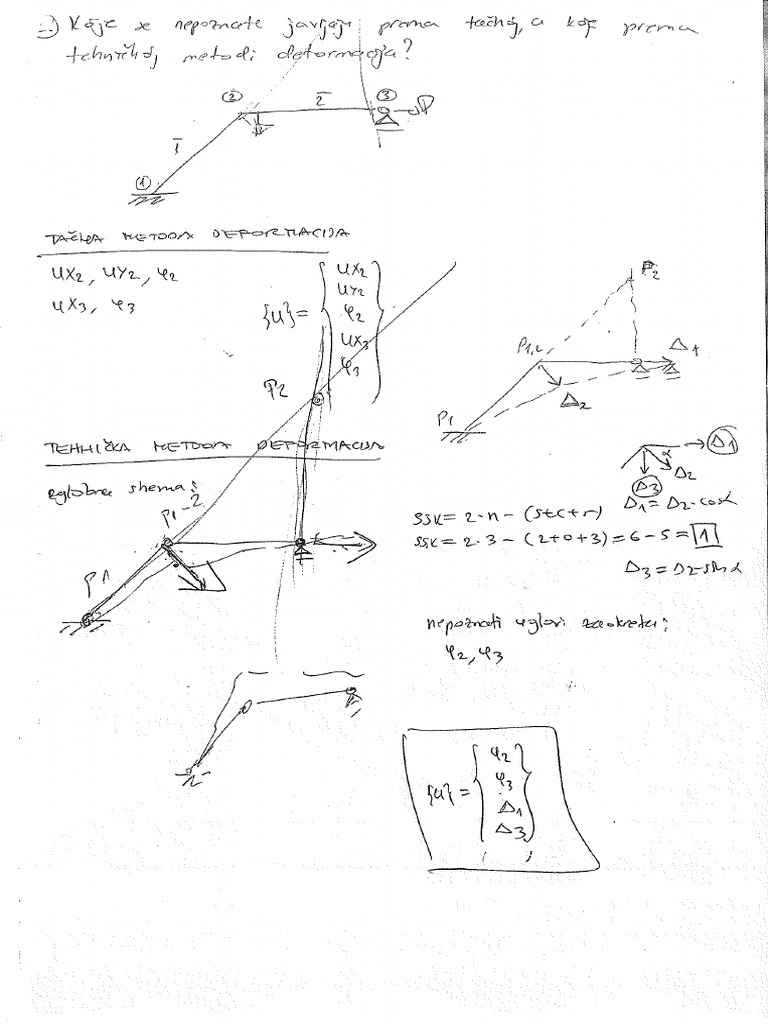 :) Koje se nepoznate javljaju prema tačnoj, a koje prema
tehničkoj metodi deformacija?
② 2 ③ P
1
①
TAČNA METODA DEFORMACIJA
ux2, uy2, φ2
ux3, φ3
{u} = { ux2 uy2 φ2 ux3 φ3 }
P2
P1,2
Δ1
Δ2
P1
P2
TEHNIČKA METODA DEFORMACIJA
zglobna shema:
P1-2
P1
Δ1
α
Δ2
Δ3
Δ1 = Δ2·cosα
SSK = 2·n - (s+c+r)
SSK = 2·3 - (2+0+3) = 6-5 = 1
Δ3 = Δ2·sinα
nepoznati uglovi zaokreta:
φ2, φ3
{u} = { φ2 φ3 Δ1 Δ3 }